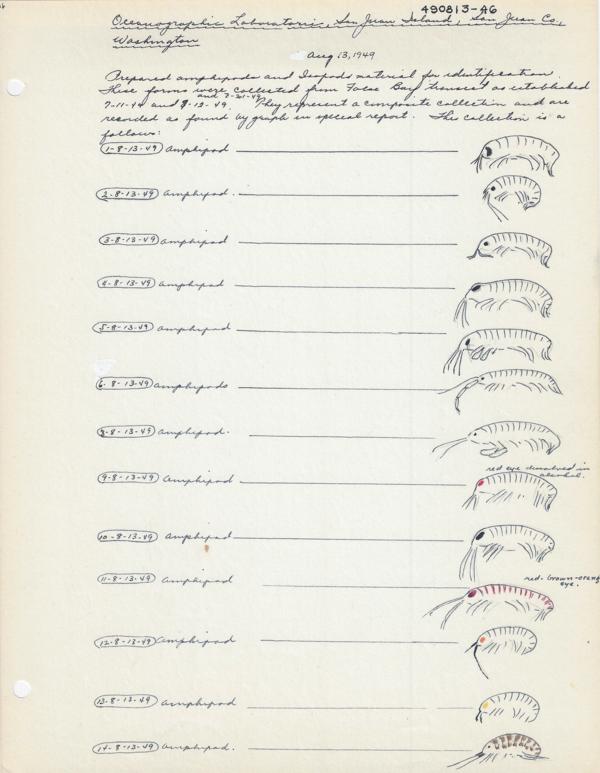 490813-A6
Oceanographic Laboratories, San Juan Island, San Juan Co,
Washington
Aug 13, 1949
Prepared amphipods and Isopods material for identification.
These forms were collected from False Bay transect as established
and 7-21-49
7-11-49 and 8-12-49. They represent a composite collection and are
recorded as found by graph in special report. This collection is a
follows:
1-8-13-49 Amphipod
2-8-13-49 Amphipod.
3-8-13-49 Amphipod
4-8-13-49 Amphipod
5-8-13-49 Amphipod
6-8-13-49 Amphipods
8-8-13-49 Amphipod.
red eye dissolved in
alcohol.
9-8-13-49 Amphipod
10-8-13-49 Amphipod
11-8-13-49 Amphipod
red-brown-orange
eye.
12-8-13-49 Amphipod
13-8-13-49 Amphipod
14-8-13-49 Amphipod.